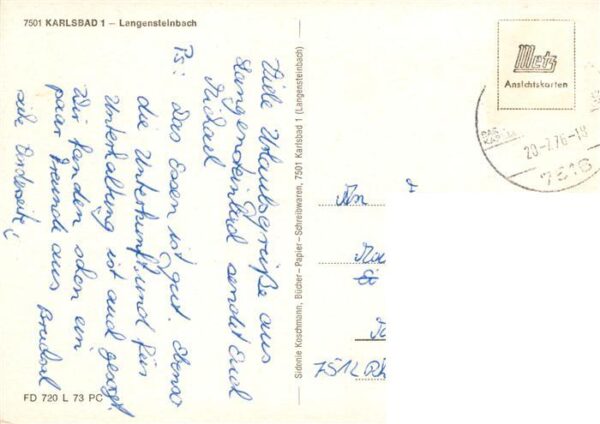 7501 KARLSBAD 1 – Langensteinbach
Viele Urlaubsgrüße aus
Langensteinbach sendet Euch
Michael
Ps: Das Essen ist gut. Ebenso
die Unterkunft und für
Unterhaltung ist auch gesorgt.
Wir fanden schon ein
paar Freunde aus
siehe Vorderseite!
FD 720 L 73 PC
Sidonie Koschmann, Bücher–Papier–Schreibwaren, 7501 Karlsbad 1 (Langensteinbach)
Metz
Ansichtskarten
20-7.76-18
An
7512